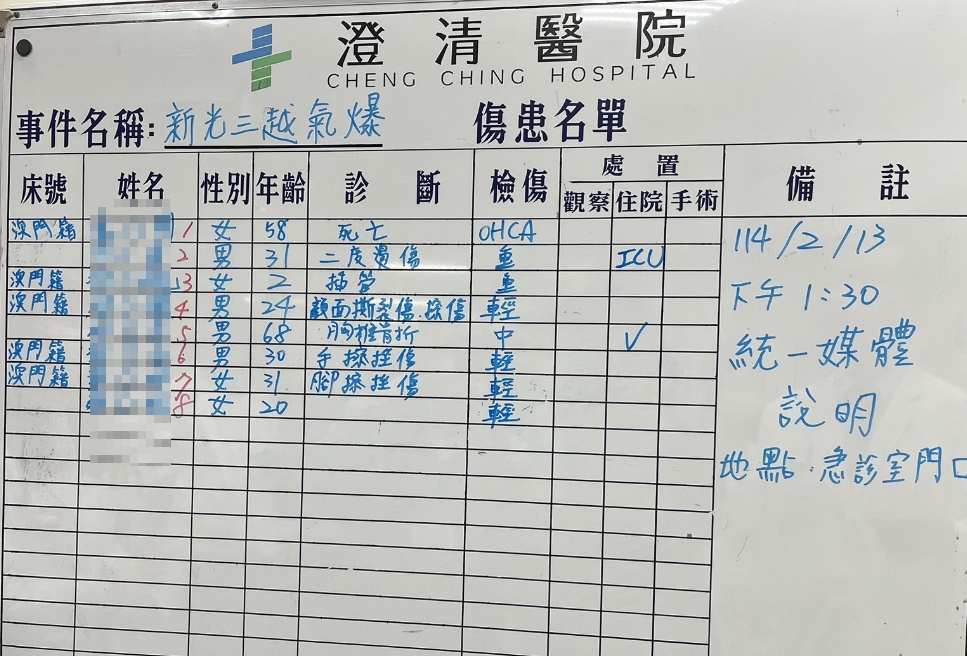 澄清醫院
CHENG CHING HOSPITAL
事件名稱: 新光三越氣爆 傷患名單
床號 姓名 性別 年齡 診斷 檢傷 處置 備註
觀察 住院 手術
澳門籍 1 女 58 死亡 OHCA
2 男 31 二度燙傷 重 ICU
澳門籍 3 女 2 插管 重
澳門籍 4 男 24 顏面撕裂傷.擦傷 輕
5 男 68 胸椎骨折 中 ✓
澳門籍 6 男 30 手擦挫傷 輕
澳門籍 7 女 31 腳擦挫傷 輕
8 女 20 輕
114/2/13
下午1:30
統一媒體
說明
地點:急診室門口